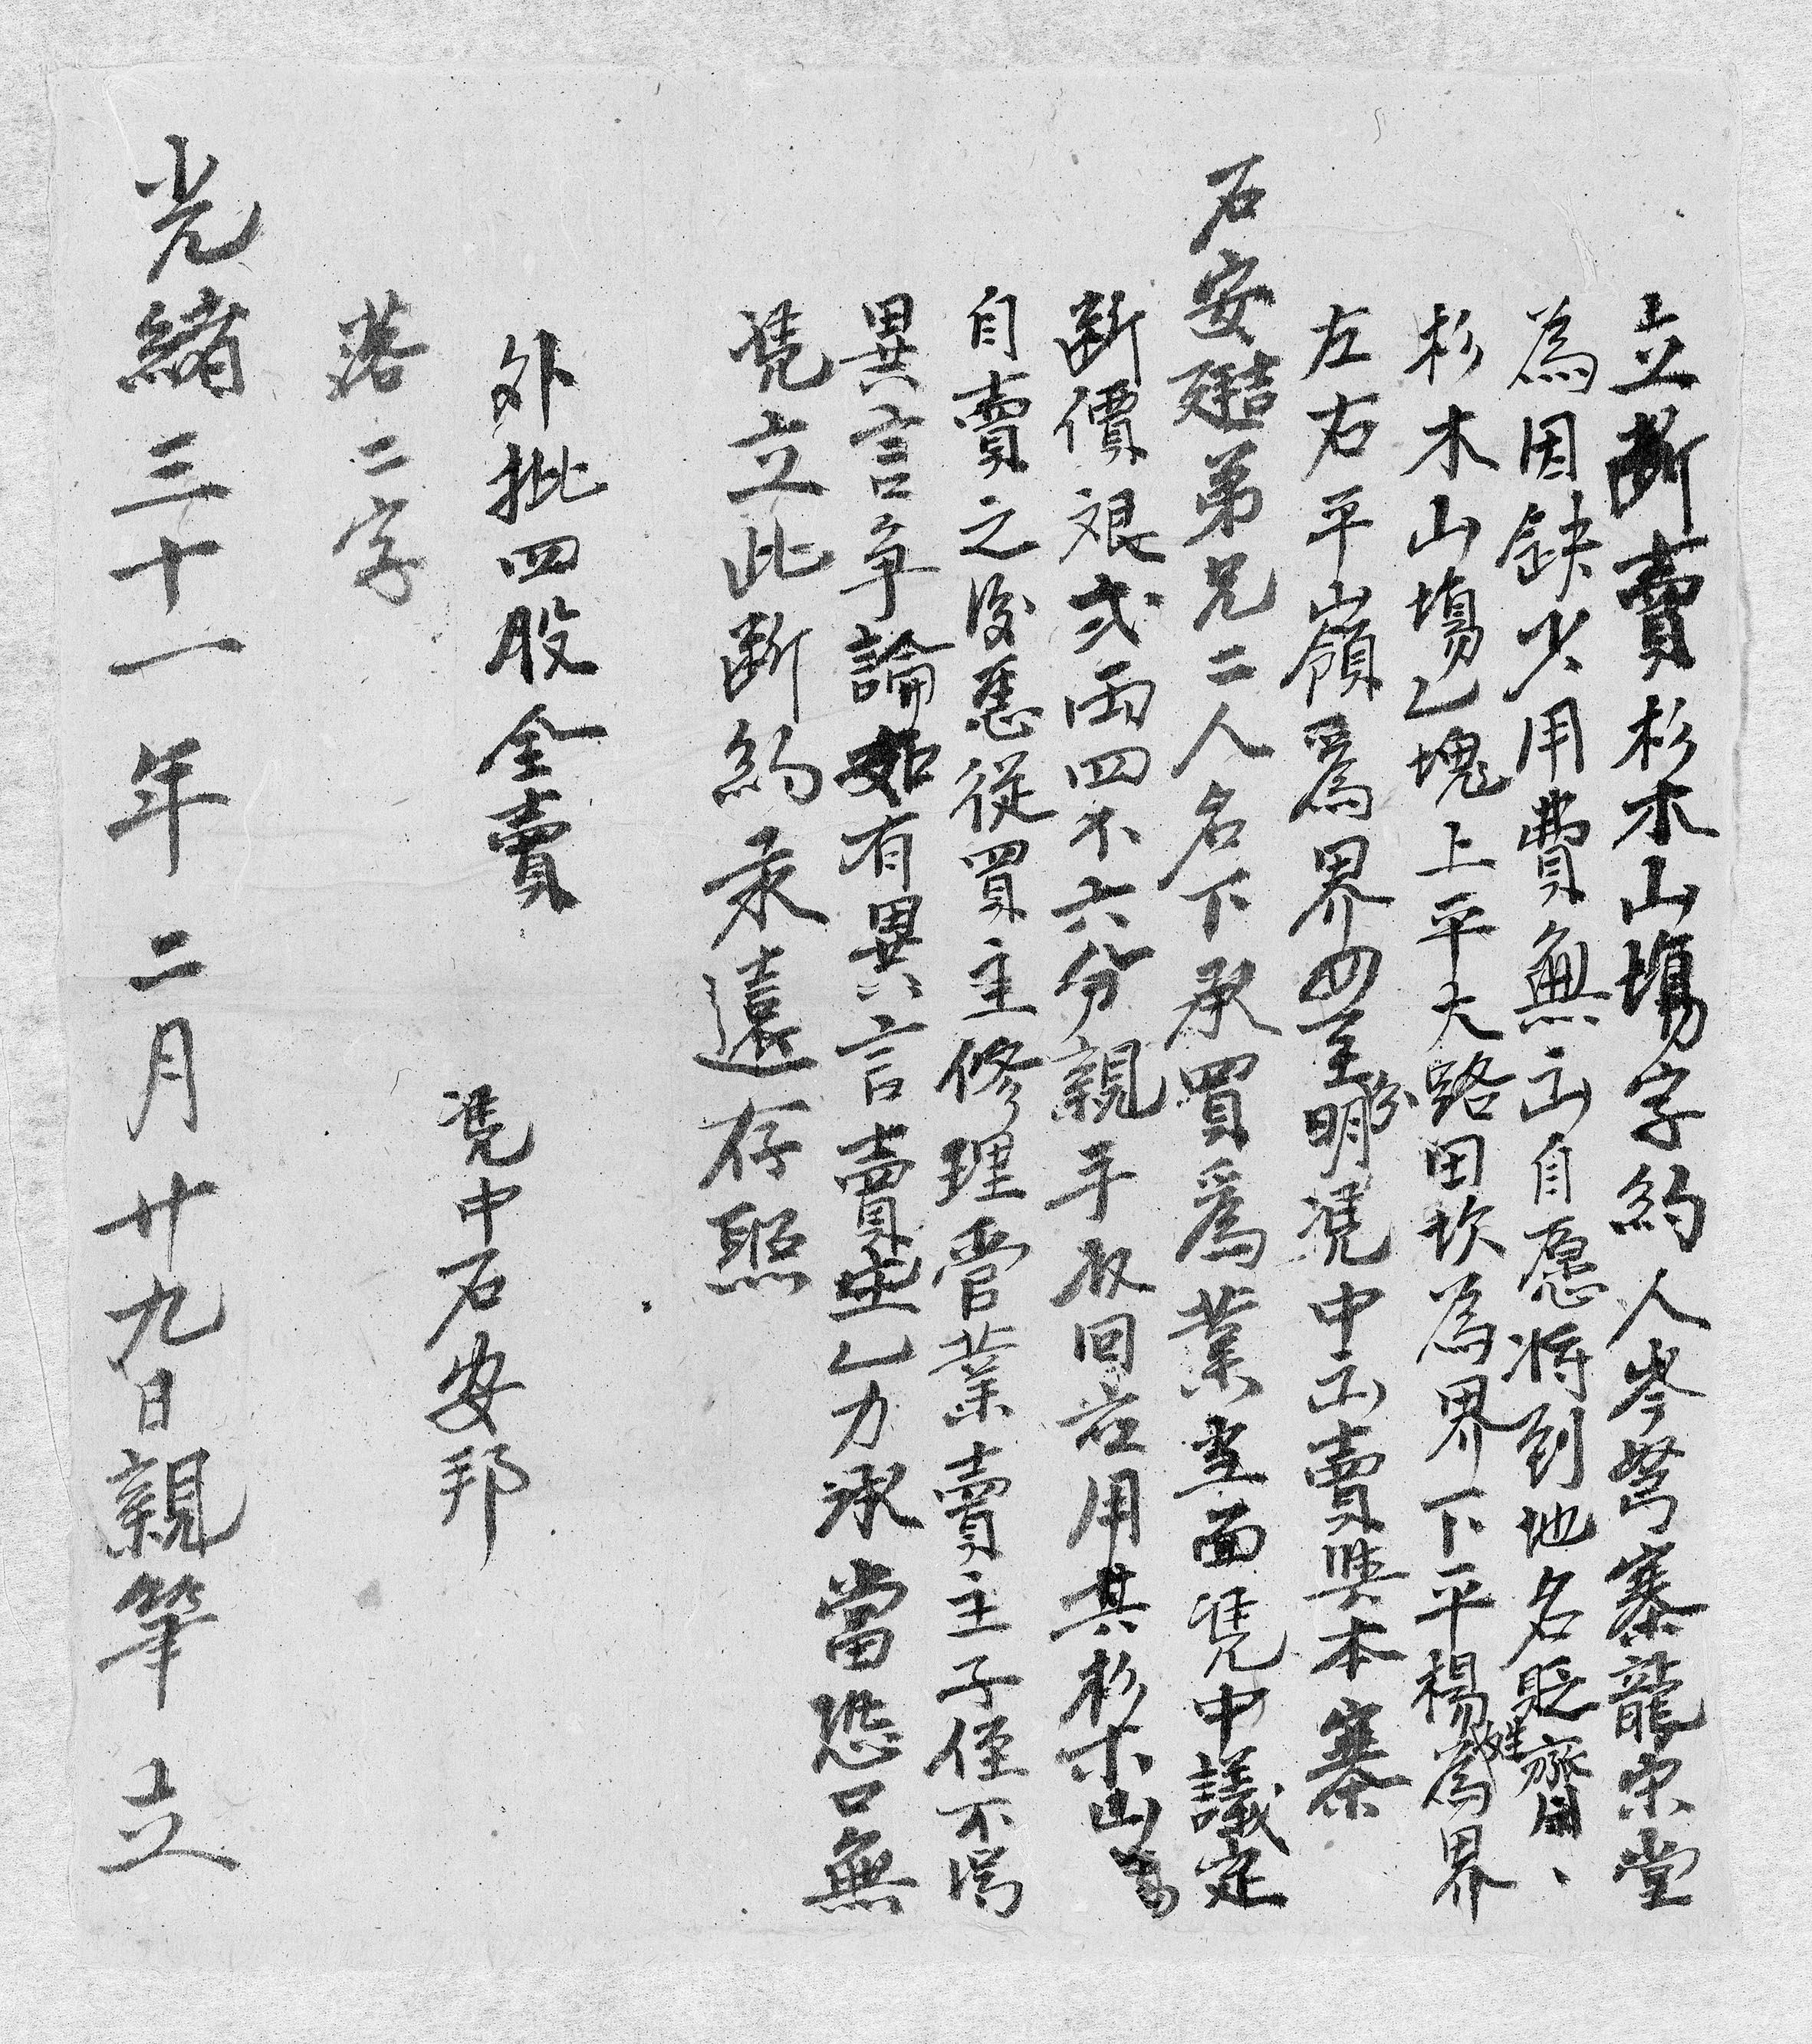 立斷賣杉木山塲字約人岑努寨龍宗堂
為因缺少用費無出自愿将到地名貶齊
杉木山塲乙塊上平大路田坎為界下平楊姓為界
左右平嶺爲界四至分明凴中出賣與本寨
石安廷弟兄二人名下承買爲業當面凴中議定
断價艮弍両四不六分親手收回应用其杉木山塲
自賣之後慿從買主修理管業賣主子侄不得
異言争論如有異言賣主乙力承當恐口無
凴立此断約永遠存照
外批四股全賣
凴中石安邦
落二字
光緒三十一年二月廿九日親筆立